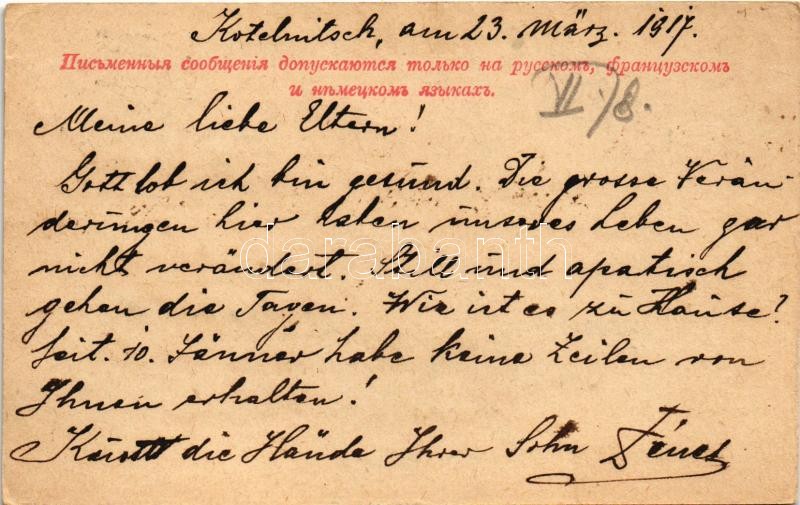 Kotelnitsch, am 23. März. 1917.
Письменныя сообщенія допускаются только на русскомъ, французскомъ
и нѣмецкомъ языкахъ.
VI/8.
Meine liebe Eltern!
Gott lob ich bin gesund. Die grosse Verän-
derungen hier haben unseres Leben gar
nicht verändert. Still und apatisch
gehen die Tagen. Wie ist es zu Hause?
Seit. 10. Jänner habe keine Zeilen von
Ihnen erhalten!
die Hände Ihrer Sohn
darabanth